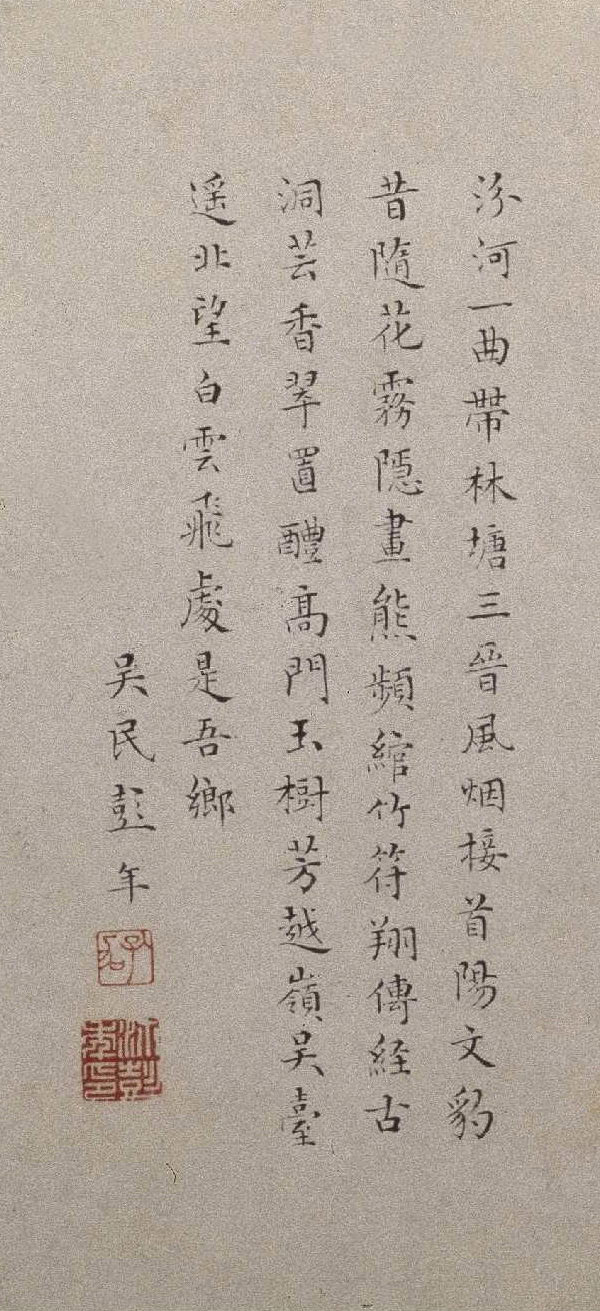 汾河一曲帶林塘三晉風烟接首陽文豹
昔隨花霧隱畫熊頻綰竹符翔傳經古
洞芸香翠置醴高門玉樹芳越嶺吳臺
遥北望白雲飛處是吾鄉
吳民彭年